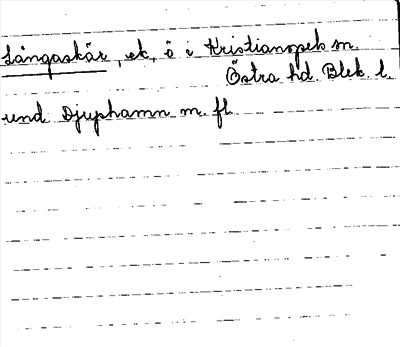 Långaskär, ek, ö i Kristianopels sn.
Östra hd. Blek. l.
und Djuphamn m. fl.